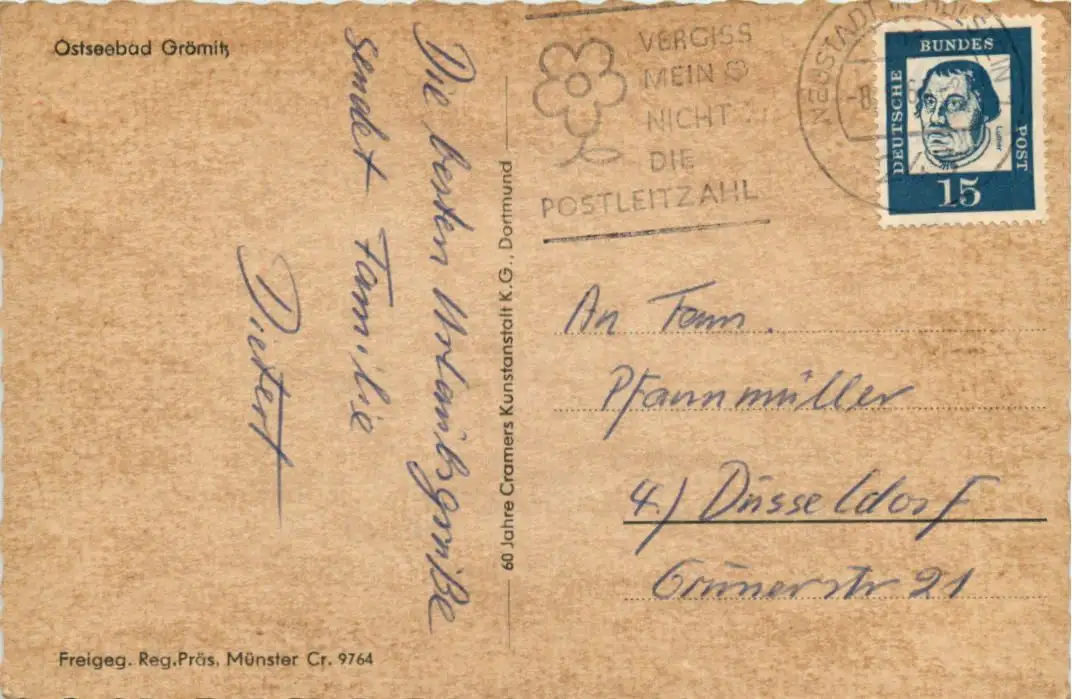 Ostseebad Grömitz
Die besten Urlaubsgrüße
sendet Familie
Dietert
60 Jahre Cramers Kunstanstalt K.G., Dortmund
Freigeg. Reg.Präs. Münster Cr. 9764
VERGISS
MEIN
NICHT
DIE
POSTLEITZAHL
NEUSTADT IN HOLSTEIN
DEUTSCHE
BUNDES
POST
Luther
15
An Fam.
Pfannmüller
4.) Düsseldorf
Grünerstr 21